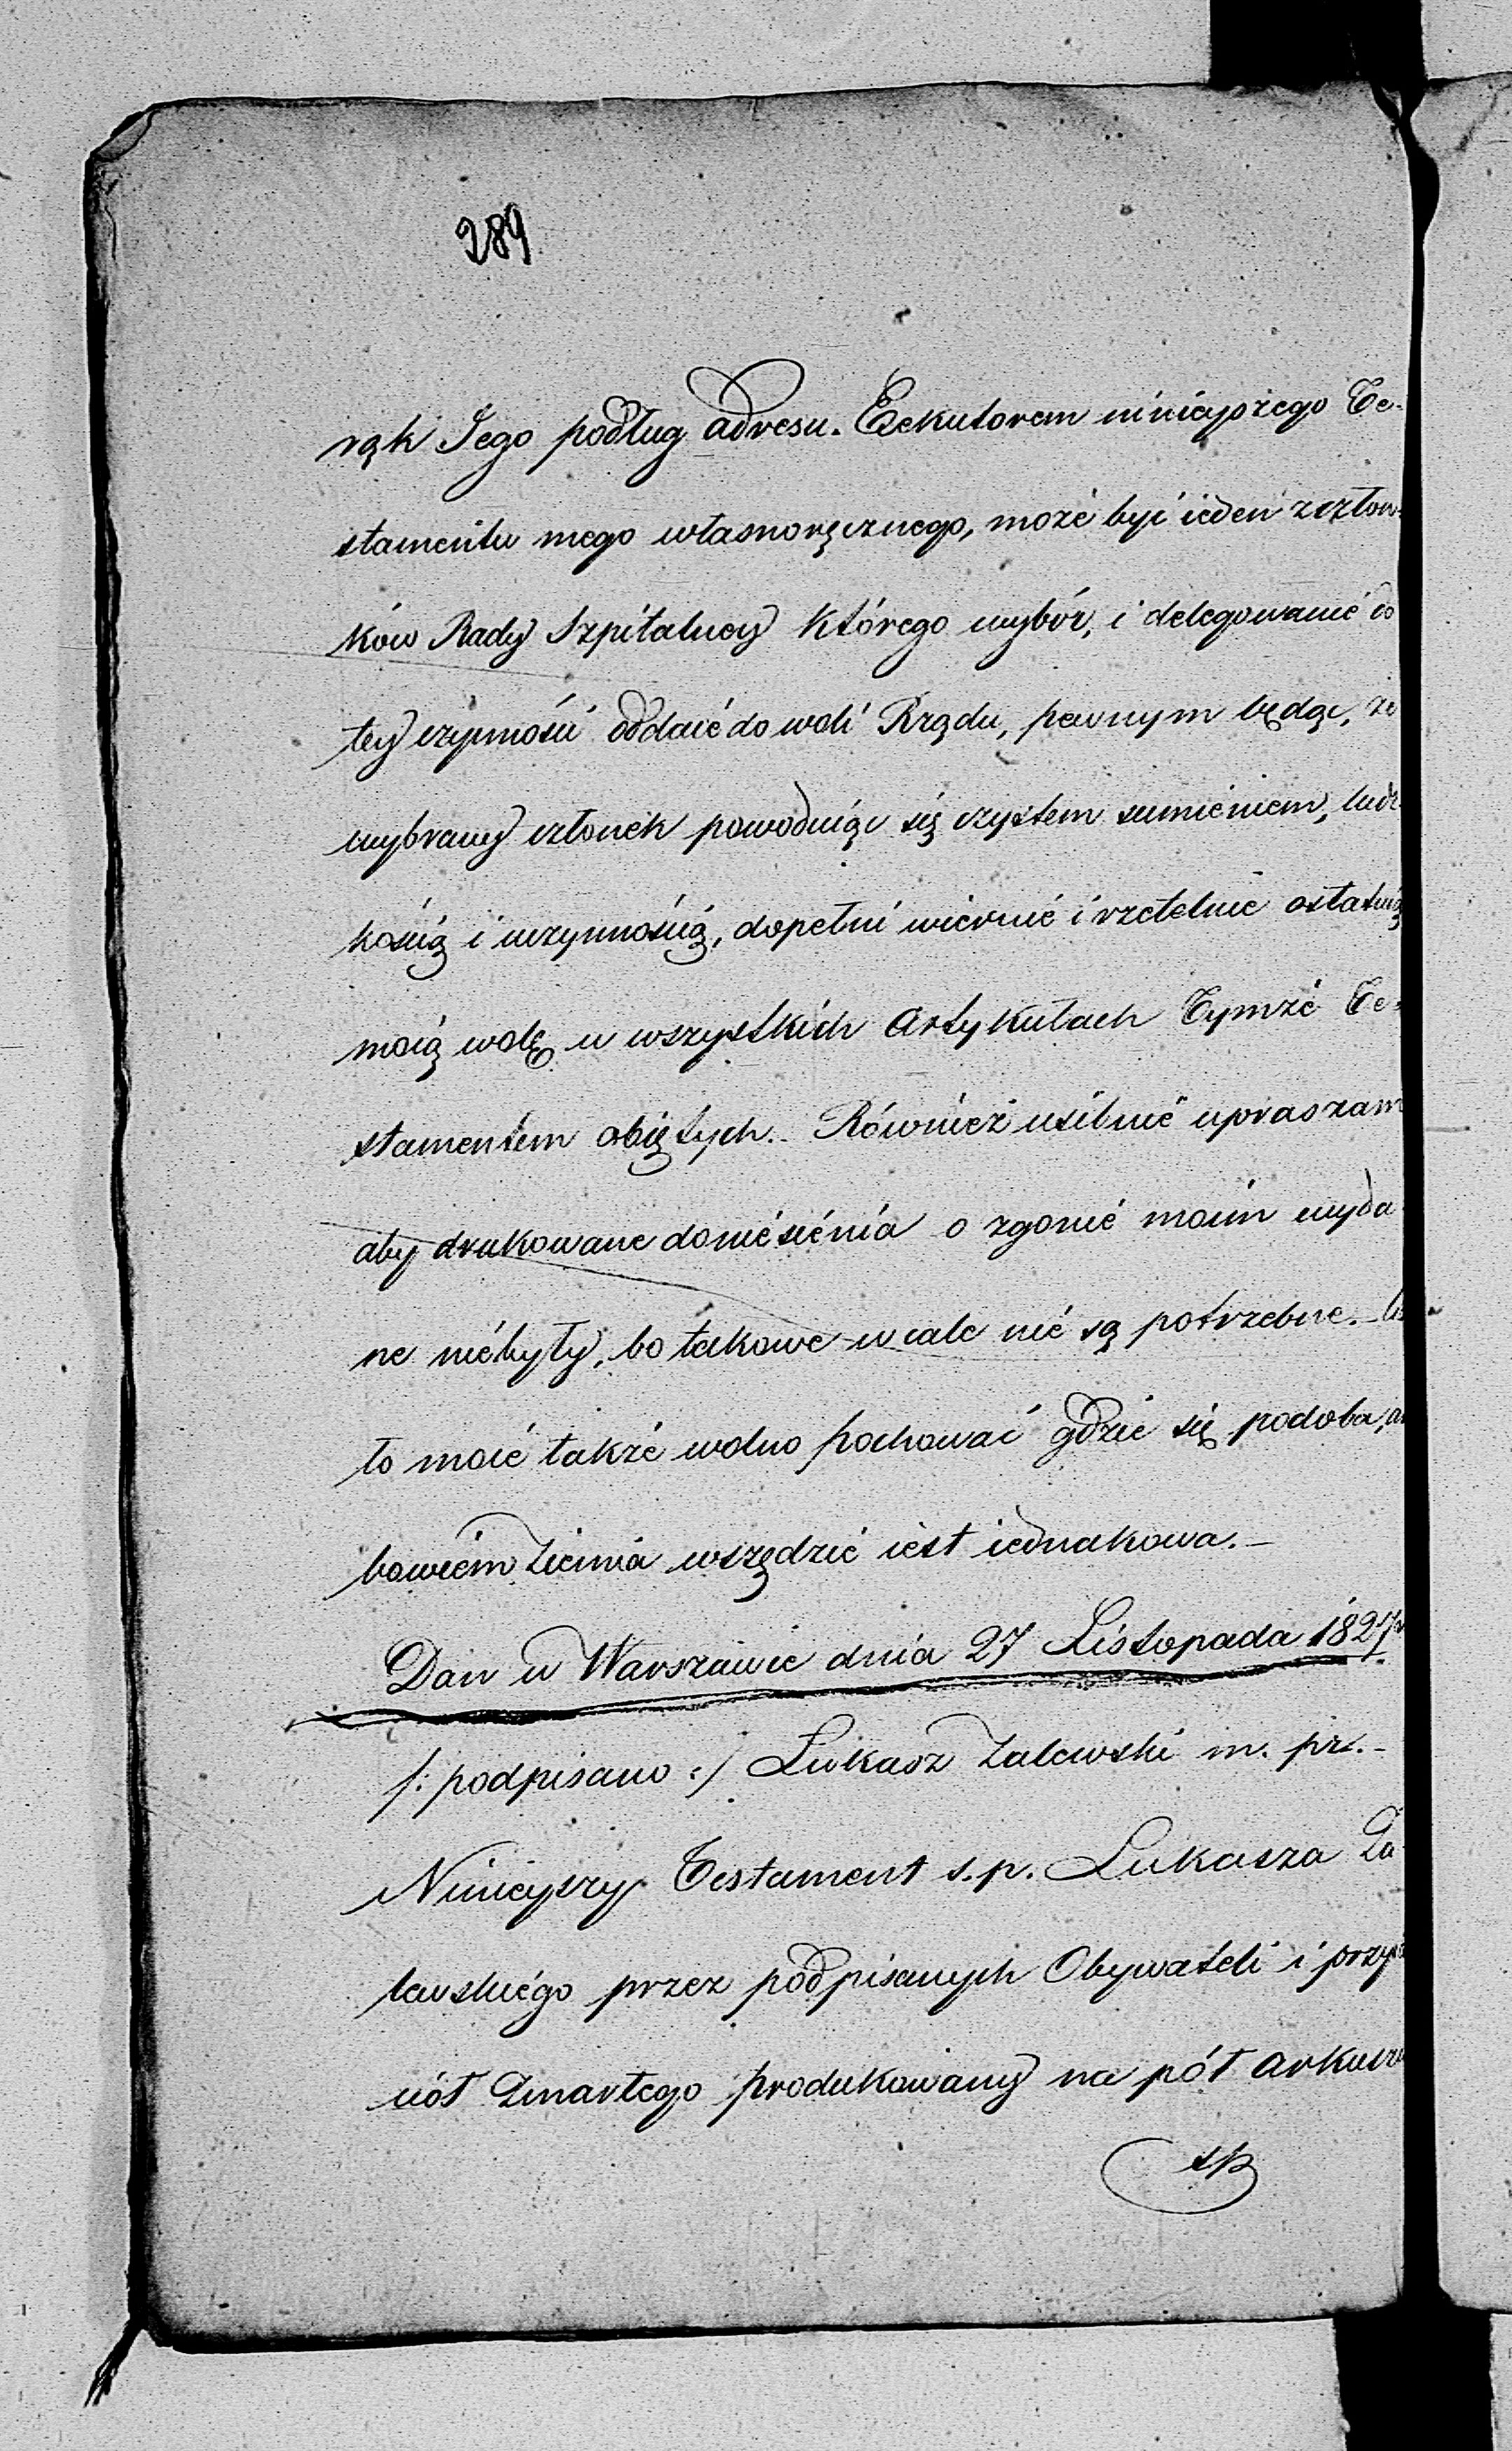 289
rąk Jego podług adresu. Exekutorem ninieyszego Te-
stamentu mego własnoręcznego, może być ieden z człon-
ków Rady Szpitalney którego wybór, i delegowanie do
tey czynności oddaię do woli Rządu, pewnym będąc, że
wybrany członek powodując się czystem sumieniem, ludz-
kością i uczynnością, dopełni wiernie i rzetelnie ostatnią
moią wolę w wszystkich Artykułach Tymże Te-
stamentem obiętych. Również usilnie upraszam
aby drukowane doniesienia o zgonie moim wyda-
ne niebyły, bo takowe wcale nie są potrzebne.
to moie także wolno pochować gdzie się podoba,
bowiem Ziemia wszędzie iest iednakowa.—
Dan w Warszawie dnia 27 Listopada 1827 r
/: podpisano :/ Łukasz Zalewski m. pr.-
Ninieyszy Testament s.p. Łukasza Za-
lewskiego przez podpisanych Obywateli i przy
ciół Zmarłego produkowany na pół arkuszu